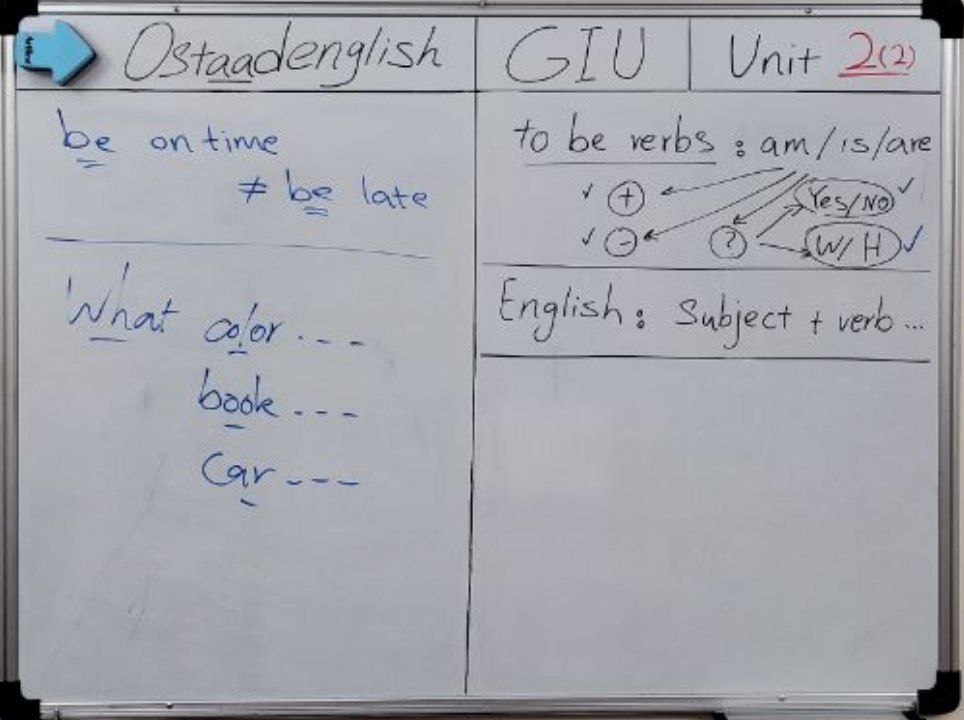 Ostaadenglish
GIU
Unit 2(2)
be on time
≠ be late
What color ...
book ...
car ...
to be verbs : am/is/are
✓ + Yes/No ✓
✓ - ? W/H ✓
English : Subject + verb ...